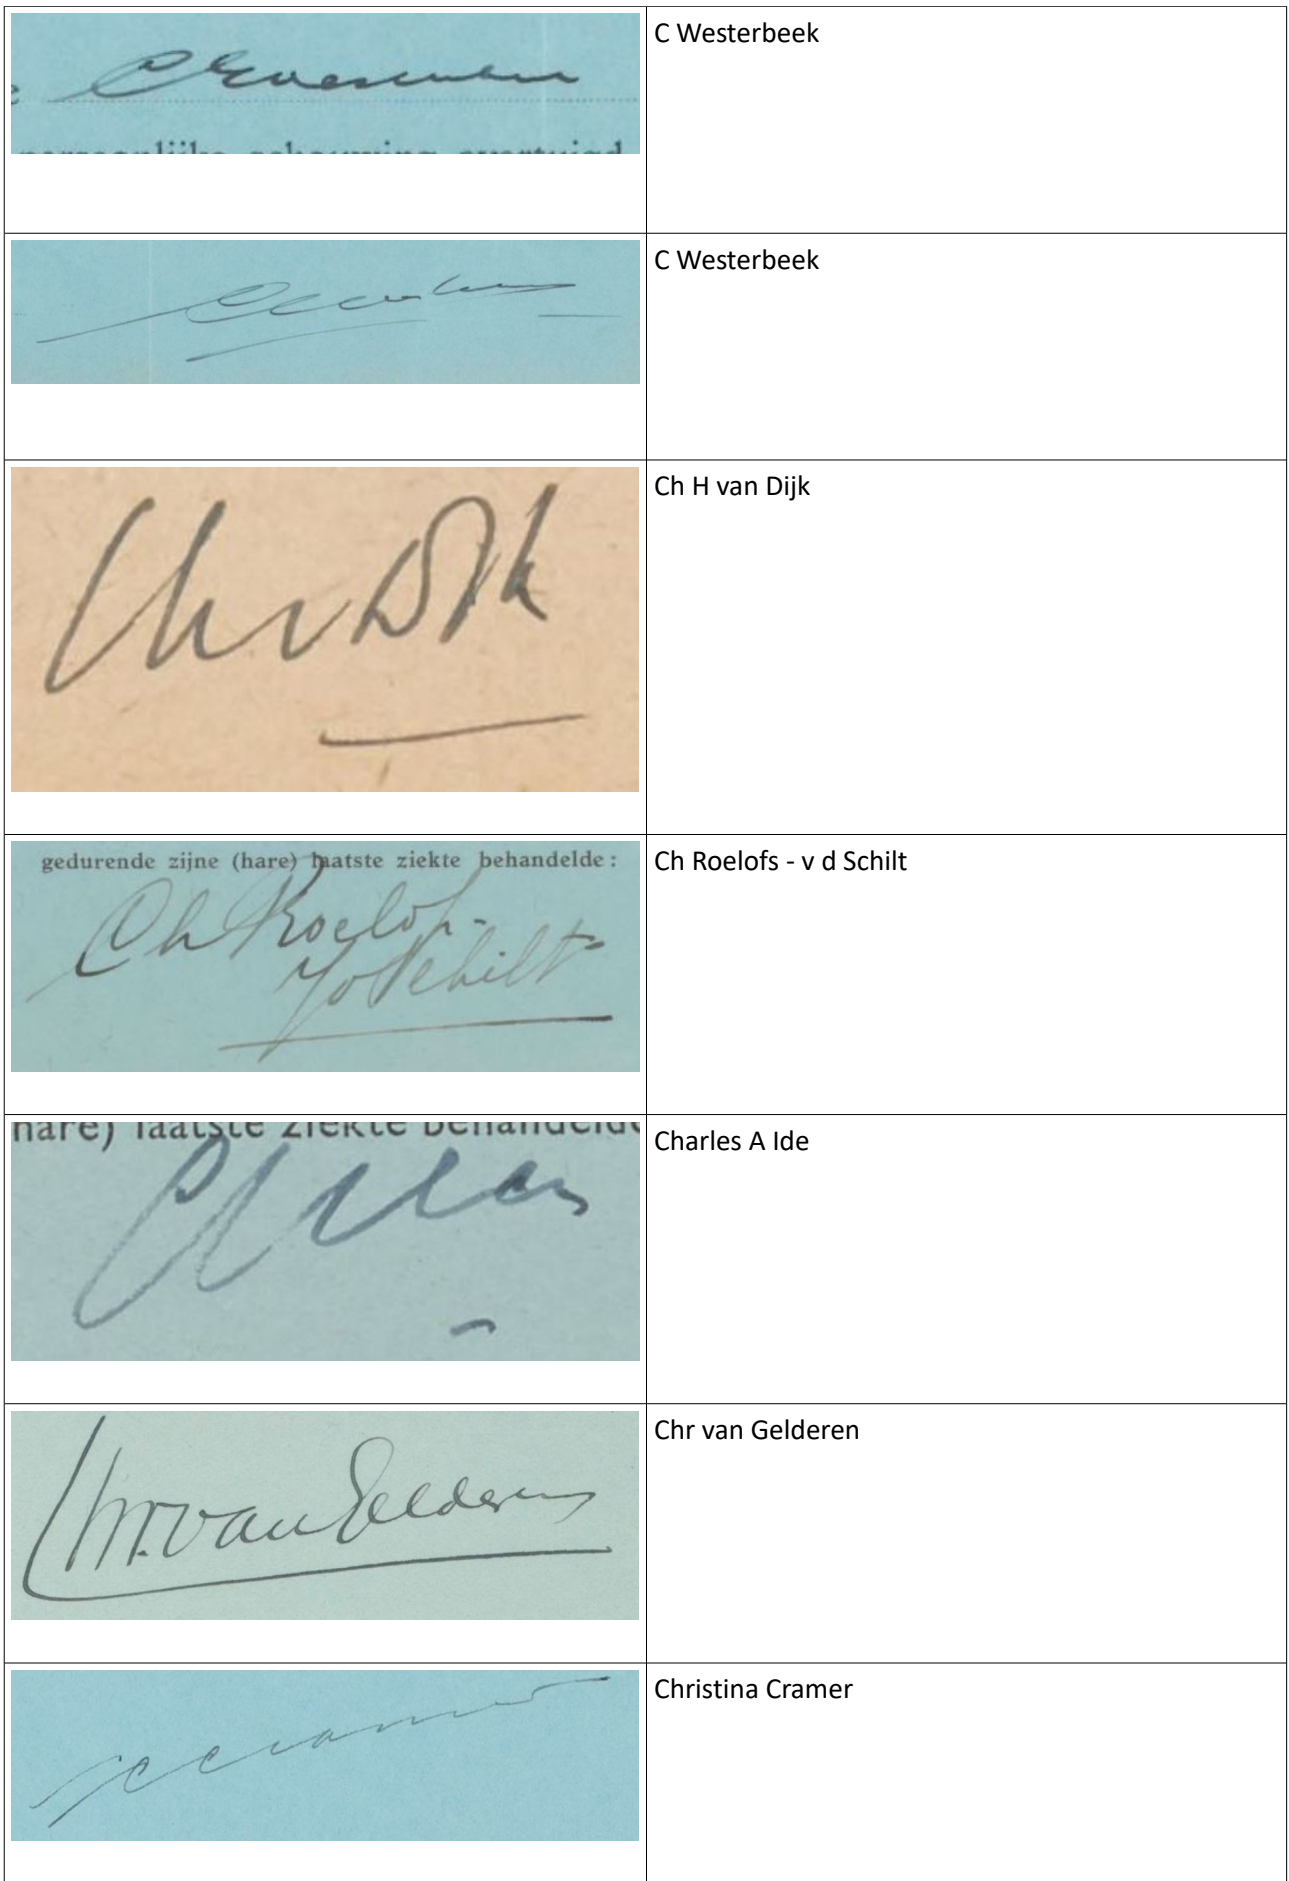 C Westerbeek
C Westerbeek
Ch H van Dijk
Ch v Dijk
gedurende zijne (hare) laatste ziekte behandelde:
Ch Roelofs - v d Schilt
Ch Roelofs-
v d Schilt
(hare) laatste ziekte behandelde
Charles A Ide
Chr van Gelderen
Chr. van Gelderen
Christina Cramer
CCramer